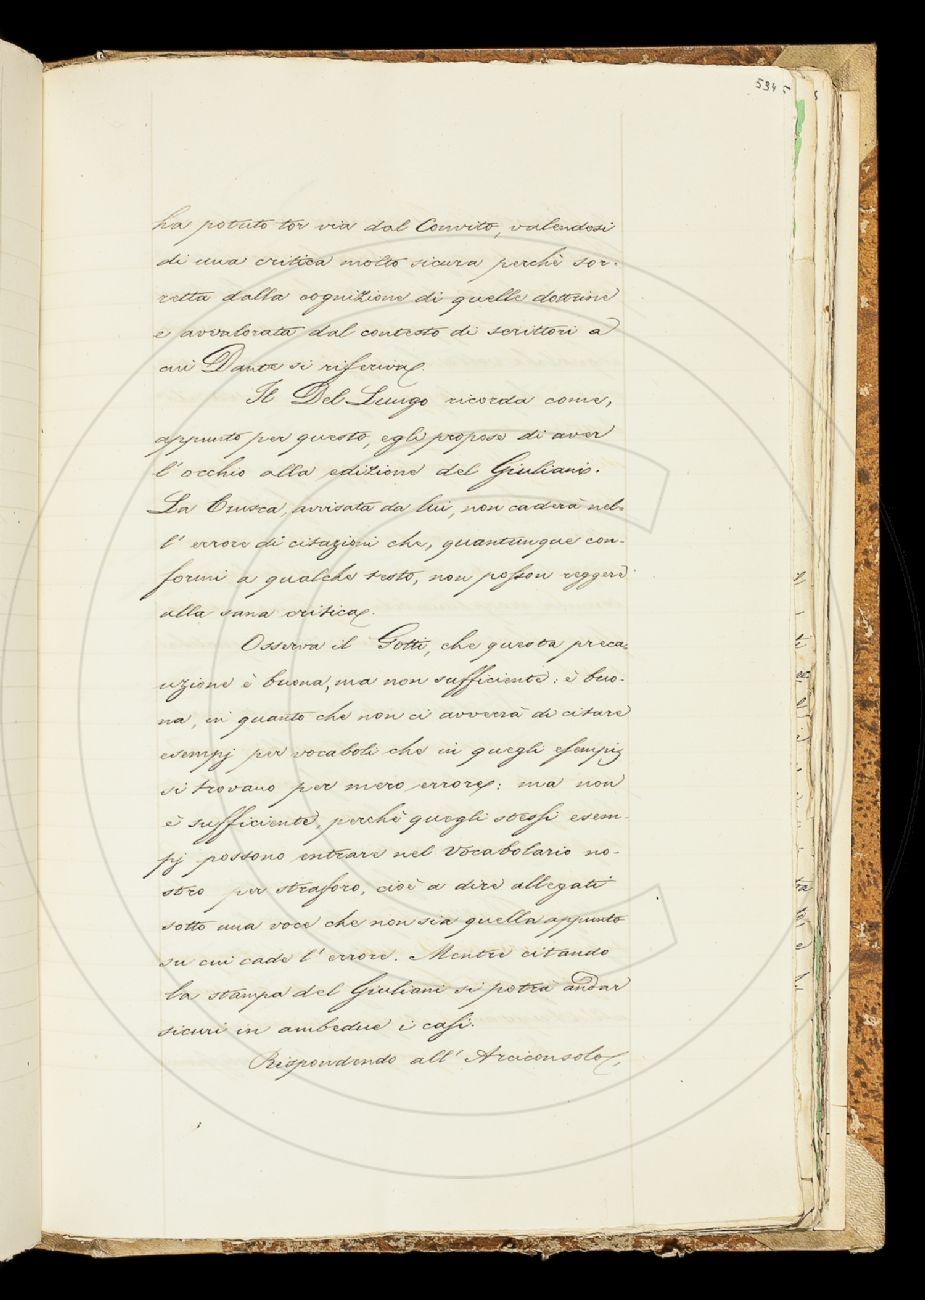 534
ha potuto tor via dal Convito, valendosi
di una critica molto sicura perchè sor-
retta dalla cognizione di quelle dottrine
e avvalorata dal contesto di scrittori a
cui Dante si riferiva.
Il Del Lungo ricorda come,
appunto per questo, egli propose di aver
l' occhio alla edizione del Giuliani.
La Crusca, avvisata da lui, non caderà nel-
l' errore di citazioni che, quantunque con-
formi a qualche testo, non posson reggere
alla sana critica.
Osserva il Gotti, che questa preca-
uzione è buona, ma non sufficiente: è buo-
na, in quanto che non ci avverrà di citare
esempj per vocaboli che in quegli esempj
si trovano per mero errore: ma non
è sufficiente, perchè quegli stessi esem-
pj possono entrare nel Vocabolario no-
stro per straforo, cioè a dire allegati
sotto una voce che non sia quella appunto
su cui cade l' errore. Mentre citando
la stampa del Giuliani si potrà andar
sicuri in ambedue i casi.
Rispondendo all' Arciconsolo,